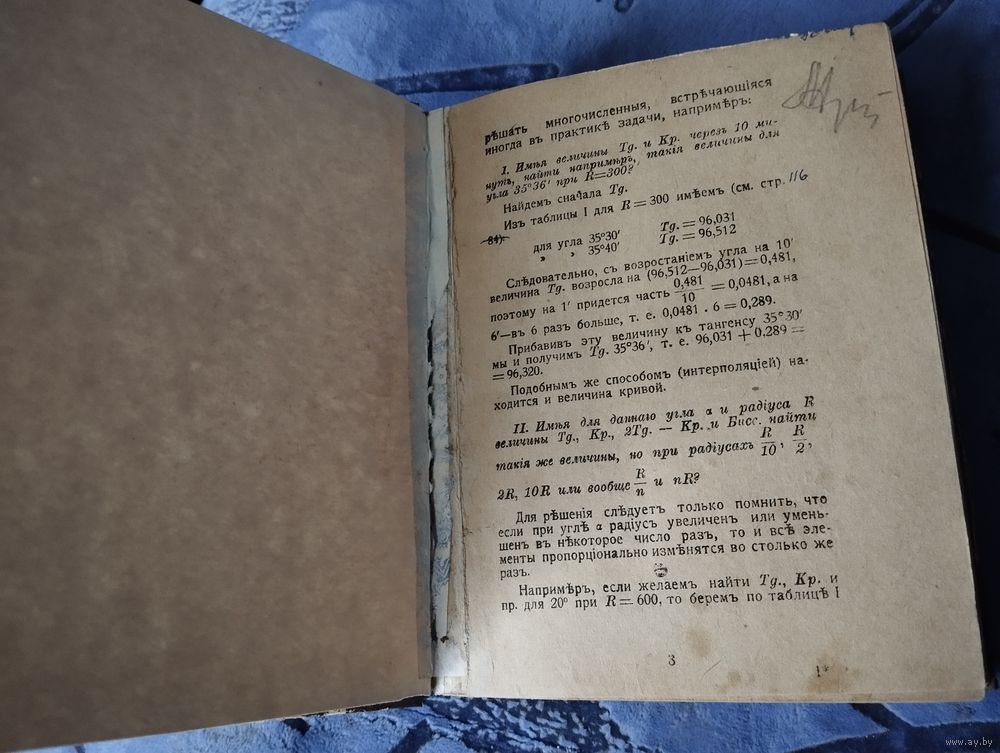 рѣшать многочисленныя, встрѣчающіяся
иногда въ практикѣ задачи, напримѣръ:
I. Имѣя величины Tg. и Кр. черезъ 10 ми-
нутъ, найти напримѣръ, такія величины для
угла 35°36′ при R=300?
Найдемъ сначала Tg.
Изъ таблицы I для R = 300 имѣемъ (см. стр. 116
84)
для угла 35°30′ Tg. = 96,031
„ „ 35°40′ Tg. = 96,512
Слѣдовательно, съ возростаніемъ угла на 10′
величина Tg. возросла на (96,512—96,031)=0,481,
поэтому на 1′ придется часть 0,481/10 = 0,0481, а на
6′—въ 6 разъ больше, т. е. 0,0481 . 6 = 0,289.
Прибавивъ эту величину къ тангенсу 35°30′
мы и получимъ Tg. 35°36′, т. е. 96,031 + 0.289 =
= 96,320.
Подобнымъ же способомъ (интерполяціей) на-
ходится и величина кривой.
II. Имѣя для даннаго угла α и радіуса R
величины Tg., Кр., 2Tg. — Кр. и Бисс. найти
такія же величины, но при радіусахъ R/10, R/2,
2R, 10R или вообще R/n и nR?
Для рѣшенія слѣдуетъ только помнить, что
если при углѣ α радіусъ увеличенъ или умень-
шенъ въ нѣкоторое число разъ, то и всѣ эле-
менты пропорціонально измѣнятся во столько же
разъ.
Напримѣръ, если желаемъ найти Tg., Кр. и
пр. для 20° при R = 600, то беремъ по таблицѣ I
3
1*
www.ay.by